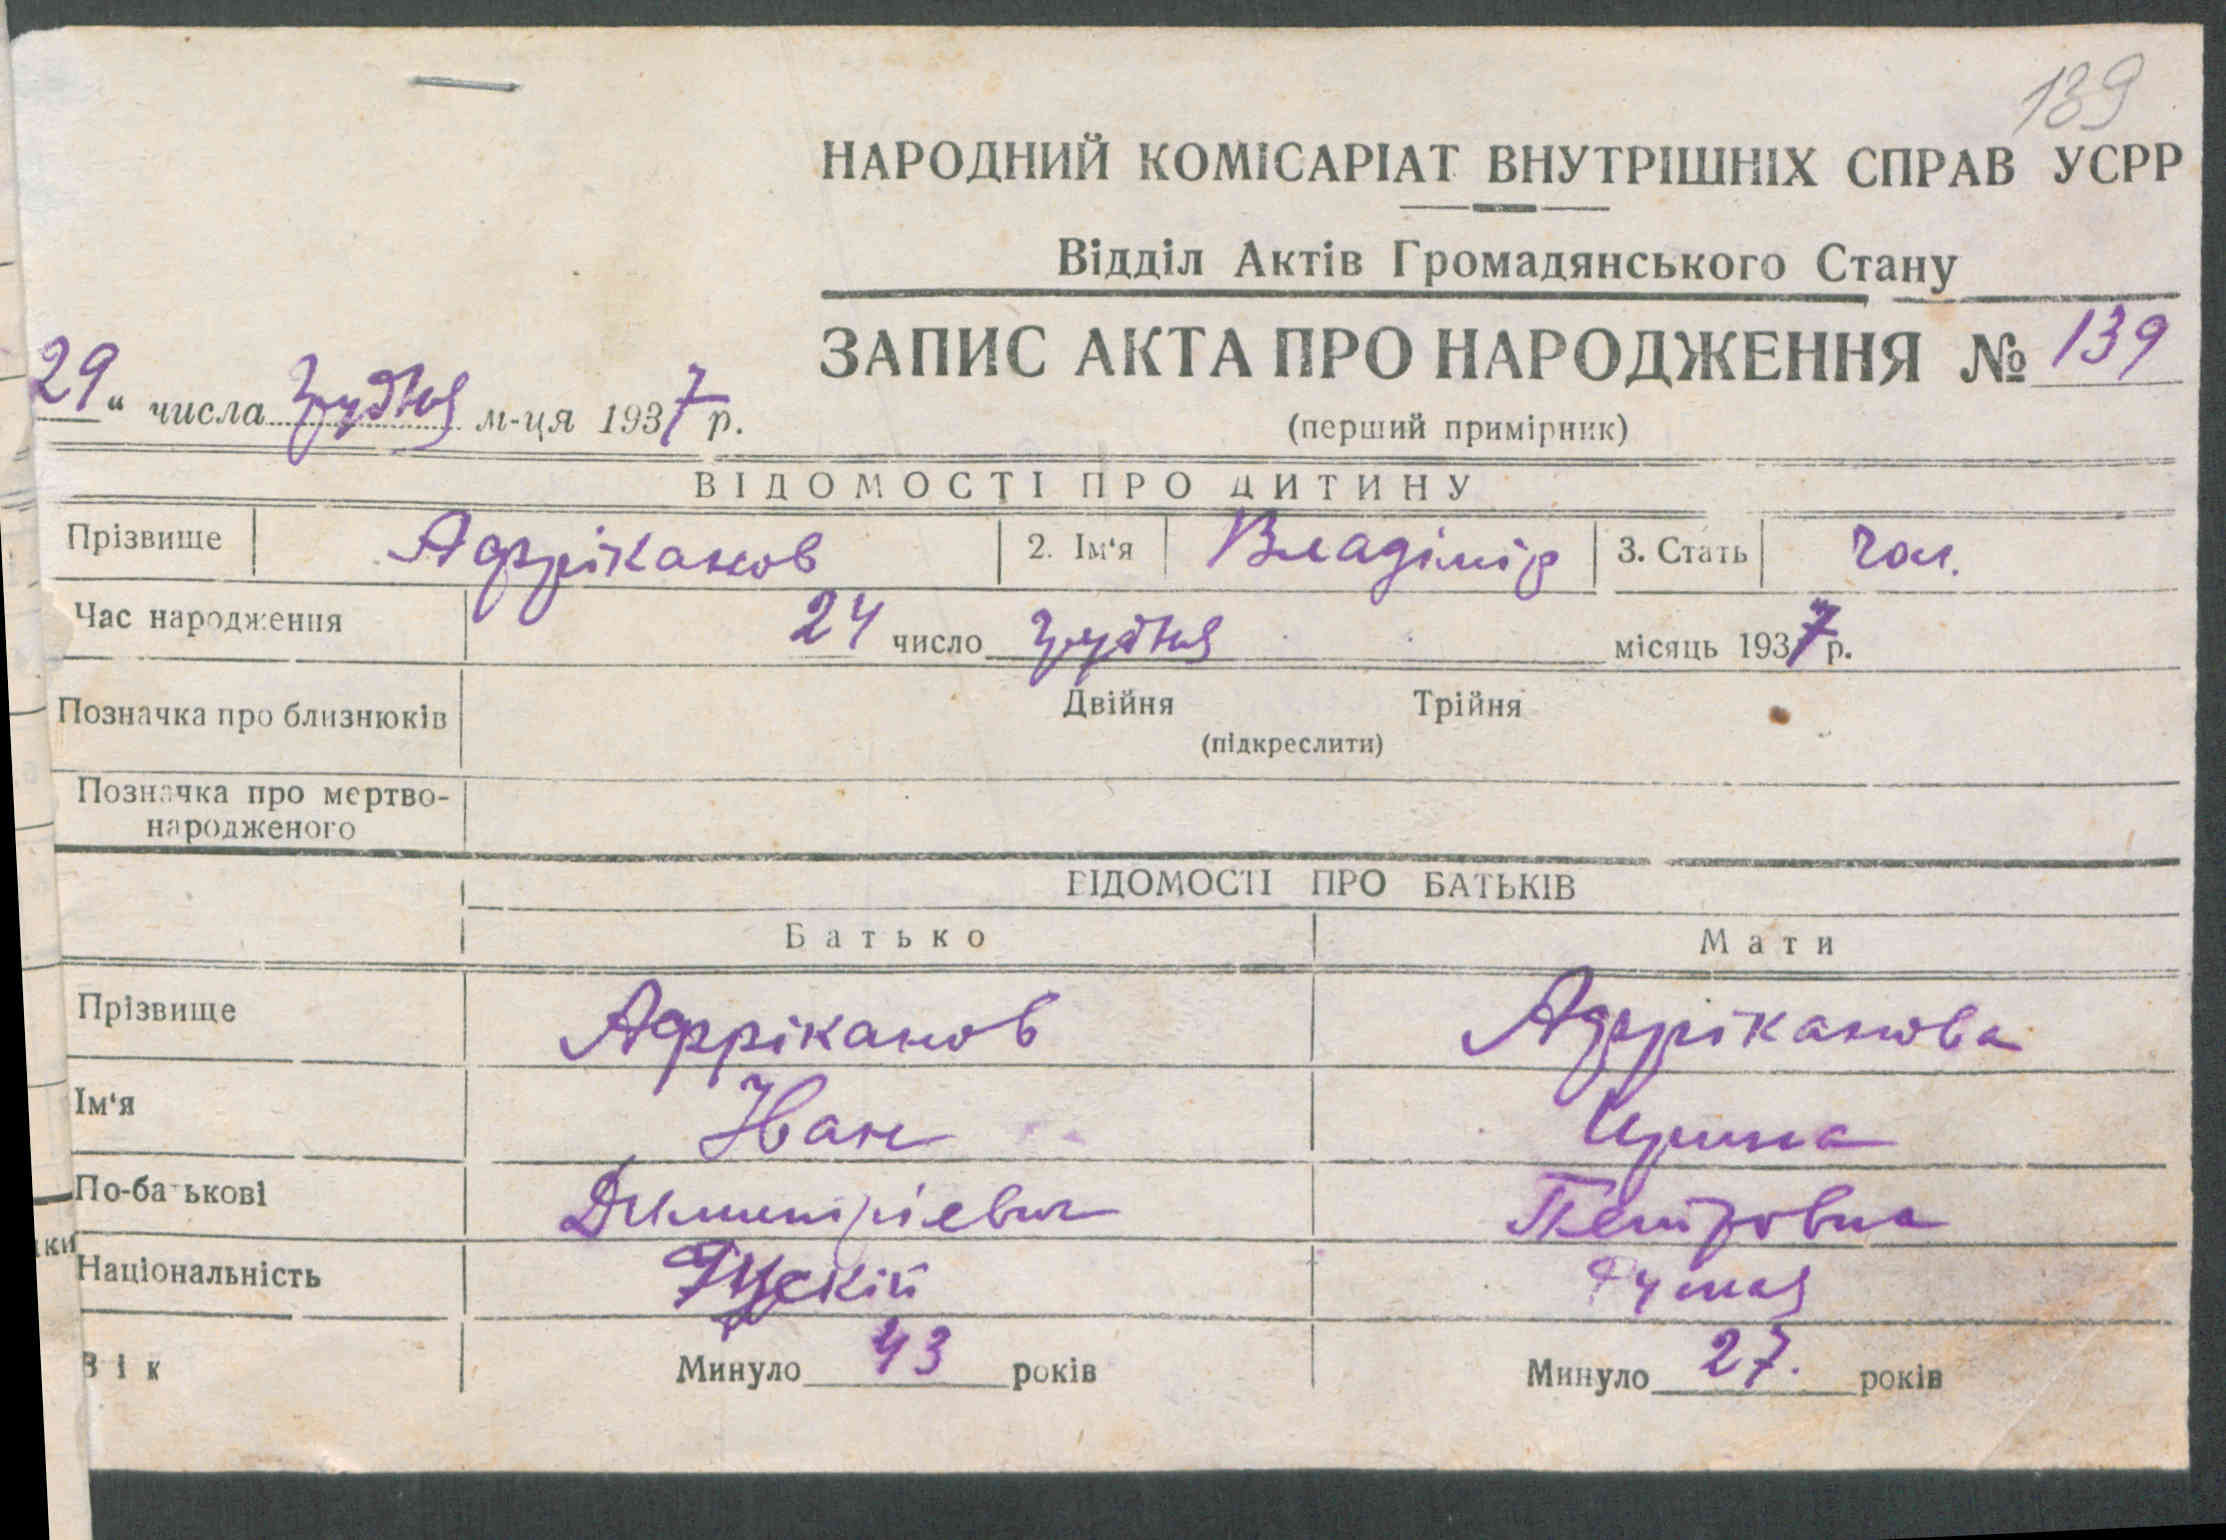 139
НАРОДНИЙ КОМІСАРІАТ ВНУТРІШНІХ СПРАВ УСРР
Відділ Актів Громадянського Стану
ЗАПИС АКТА ПРО НАРОДЖЕННЯ № 139
29 " числа грудня м-ця 1937 р.
(перший примірник)
ВІДОМОСТІ ПРО ДИТИНУ
Прізвище Афріканов 2. Ім'я Владімір 3. Стать чол.
Час народження 24 число грудня місяць 1937 р.
Позначка про близнюків Двійня Трійня
(підкреслити)
Позначка про мертво-
народженого
ВІДОМОСТІ ПРО БАТЬКІВ
Батько Мати
Прізвище Афріканов Афріканова
Ім'я Іван Ирина
По-батькові Дімитріевич Петровна
Національність Рускій
Вік Минуло 43 років Минуло 27. років